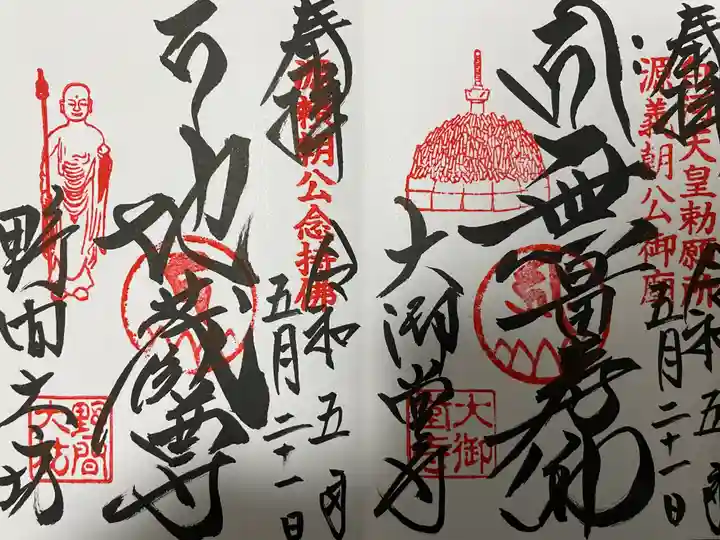 奉拝
白河天皇勅願所
源義朝公御座
令和五年
五月二十一日
無量寿佛
大御堂寺
大御堂寺
奉拝
源頼朝公念持佛
令和五年
五月二十一日
地蔵尊
野間大坊
野間大坊